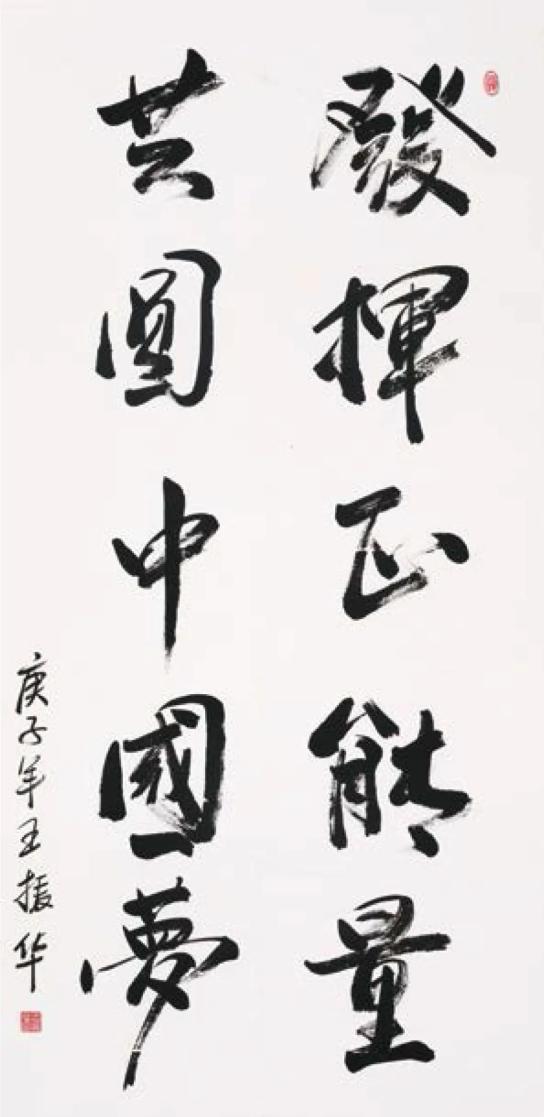 發揮正能量
共圓中國夢
庚子年王振华